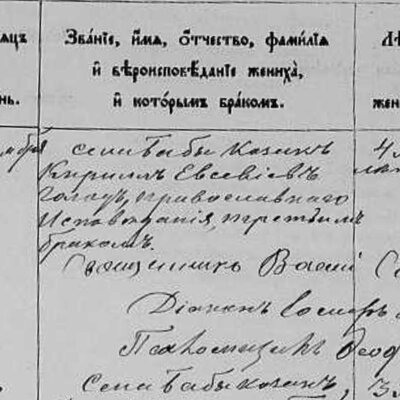 яцъ
нь.
Званіе, имя, отчество, фамилія
и вѣроисповѣданіе жениха,
и которымъ бракомъ.
Лѣ
жен
села Бабы козакъ
Кириллъ Евсевіевъ
Голодъ, православнаго
исповѣданія, третьимъ
бракомъ.
Священникъ Васи
Діаконъ
Псаломщикъ Ѳеод
села Бабы козакъ,